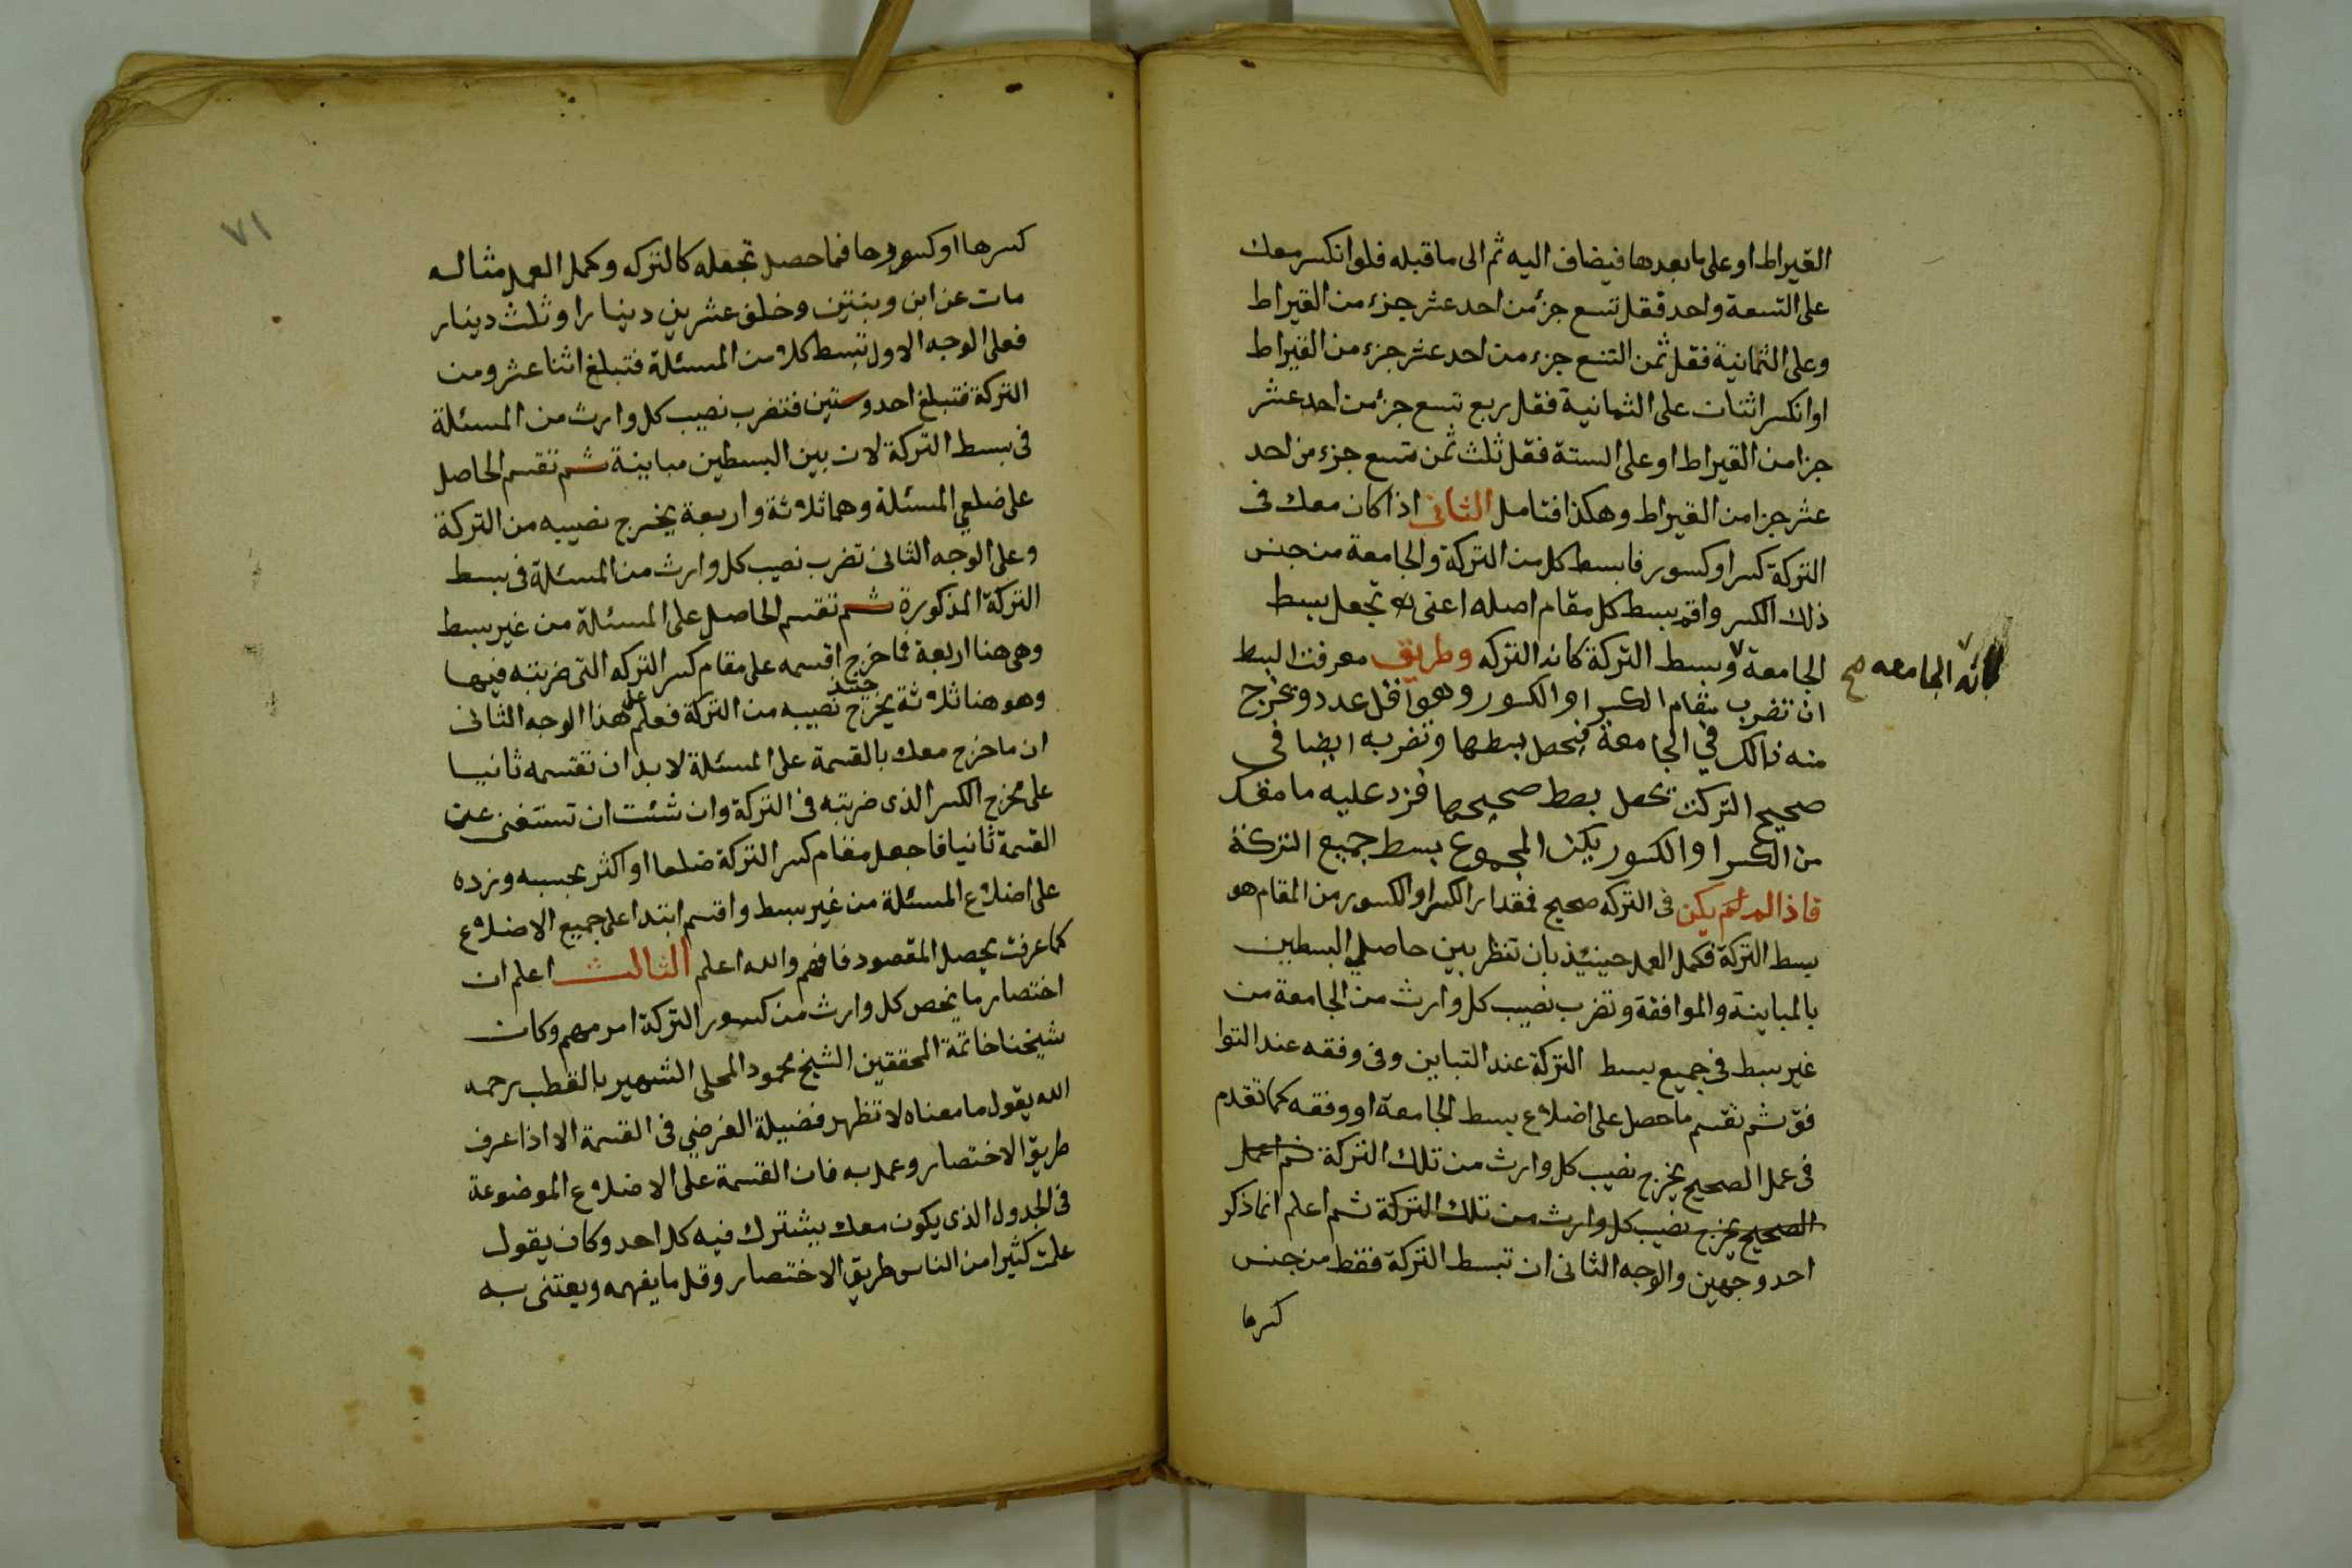 القيراط او على ما بعدها فيضاف اليه ثم الى ما قبله فلو انكسر معك
على التسعة واحد فقل تسع جزء من احد عشر جزء من القيراط
وعلى الثمانية فقل ثمن التسع جزء من احد عشر جزء من القيراط
او انكسر اثنان على الثمانية فقل ربع تسع جزء من احد عشر
جزا من القيراط او على الستة فقل ثلث ثمن تسع جزء من احد
عشر جزا من القيراط وهكذا فتامل الثانى اذا كان معك فى
التركة كسر او كسور فابسط كل من التركة والجامعة من جنس
ذلك الكسر واقم بسط كل مقام اصله اعنى تجعل بسط
الجامعة وبسط التركة كانه التركه وطريق معرفت البسط
كانه الجامعه صح
ان تضرب مقام الكسر او الكسور وهو اقل عدد ويخرج
منه ذالك في الجامعة فيحصل بسطها وتضربه ايضا في
صحيح التركت يحصل بسط صحيحها فزد عليه ما معك
من الكسر او الكسور يكن المجموع بسط جميع التركة
فاذا لم يكن فى التركه صحيح فمقدار الكسر او الكسور من المقام هو
بسط التركة فكمل العمل حينئذ بان تنظر بين حاصلي البسطين
بالمباينة والموافقة وتضرب نصيب كل وارث من الجامعة من
غير بسط فى جميع بسط التركة عند التباين وفى وفقه عند التوا
فق ثم تقسم ما حصل على اضلاع بسط الجامعة او وفقه كما تقدم
فى عمل الصحيح يخرج نصيب كل وارث من تلك التركة ثم اعمل
الصحيح يخرج نصيب كل وارث من تلك التركة ثم اعلم انما ذكر
احد وجهين والوجه الثانى ان تبسط التركة فقط من جنس
كسرها
٧١
كسرها او كسورها فما حصل تجعله كالتركه وكمل العمل مثاله
مات عن ابن وبنتين وخلف عشرين دينارا وثلث دينار
فعلى الوجه الاول تبسط كلا من المسئلة فتبلغ اثنا عشر ومن
التركة فتبلغ احد وستين فتضرب نصيب كل وارث من المسئلة
فى بسط التركة لان بين البسطين مباينة ثم تقسم الحاصل
على ضلعي المسئلة وهما ثلاثة واربعة يخرج نصيبه من التركة
وعلى الوجه الثانى تضرب نصيب كل وارث من المسئلة فى بسط
التركة المذكورة ثم تقسم الحاصل على المسئلة من غير بسط
وهى هنا اربعة فما خرج اقسمه على مقام كسر التركه التى ضربته فيها
وهو هنا ثلاثة يخرج حينئذ نصيبه من التركة فعلم على هذا الوجه الثانى
ان ما خرج معك بالقسمة على المسئلة لا بد ان تقسمه ثانيا
على مخرج الكسر الذى ضربته فى التركة وان شئت ان تستغنى عن
القسمة ثانيا فاجعل مقام كسر التركة ضلعا او اكثر بحسبه وزده
على اضلاع المسئلة من غير بسط واقسم ابتدا على جميع الاضلاع
كما عرفت يحصل المقصود فافهم والله اعلم الثالث اعلم ان
اختصار ما يخص كل وارث من كسور التركة امر مهم وكان
شيخنا خاتمة المحققين الشيخ محمود المحلى الشهير بالقطب رحمه
الله يقول ما معناه لا تظهر فضيلة الفرضي فى القسمة الا اذا عرف
طريق الاختصار وعمل به فان القسمة على الاضلاع الموضوعة
فى الجدول الذى يكون معك يشترك فيه كل احد وكان يقول
علمت كثيرا من الناس طريق الاختصار وقل ما يفهمه ويعتنى به